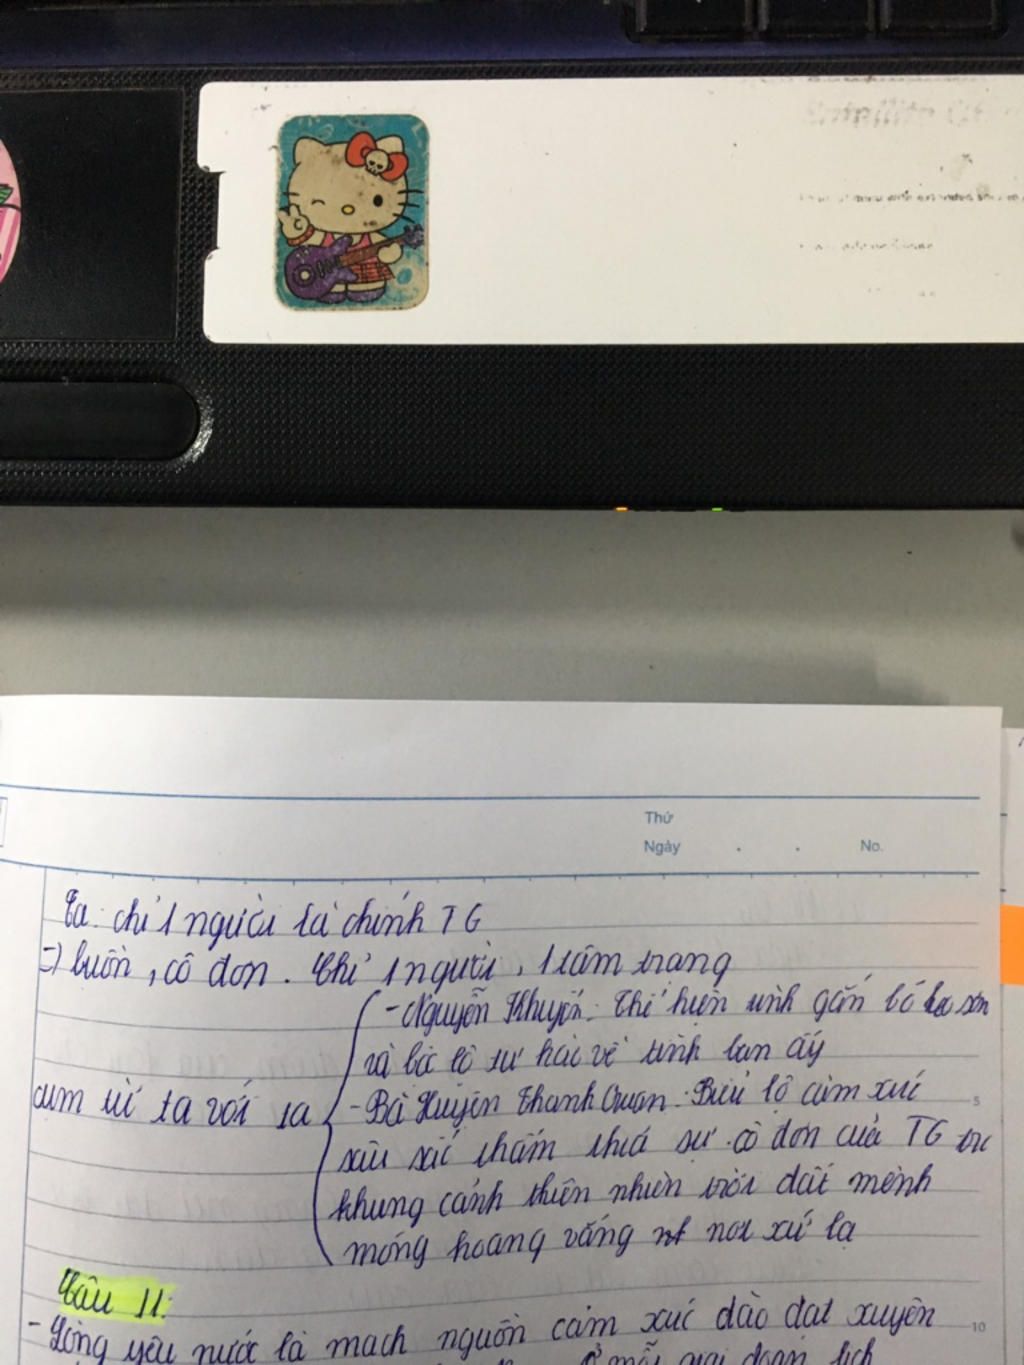 Thứ
Ngày . . No.
Ta: chỉ 1 người là chính TG
=) buồn, cô đơn. Chỉ 1 người, 1 tâm trạng
- Nguyễn Khuyến: Thể hiện tình gắn bó
và bộc lộ sự hài về tình bạn ấy
cụm từ ta với ta
- Bà Huyện Thanh Quan: Biểu lộ cảm xúc
sâu sắc thấm thía sự cô đơn của TG trc
khung cảnh thiên nhiên trời đất mênh
mông hoang vắng nơi xứ lạ
5
Câu 11:
- Lòng yêu nước là mạch nguồn cảm xúc dào dạt xuyên
10
ở mỗi giai đoạn lịch